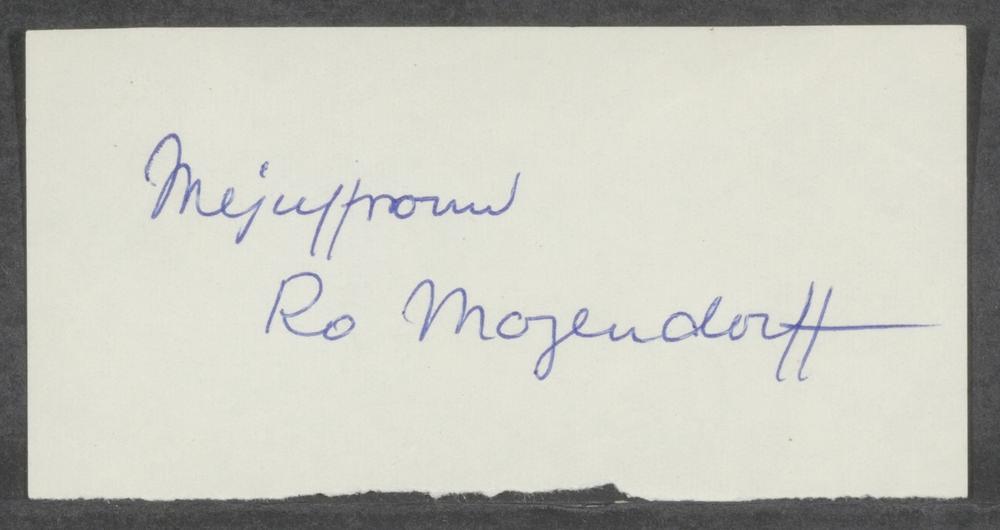 Mejuffrouw
Ro Mogendorff